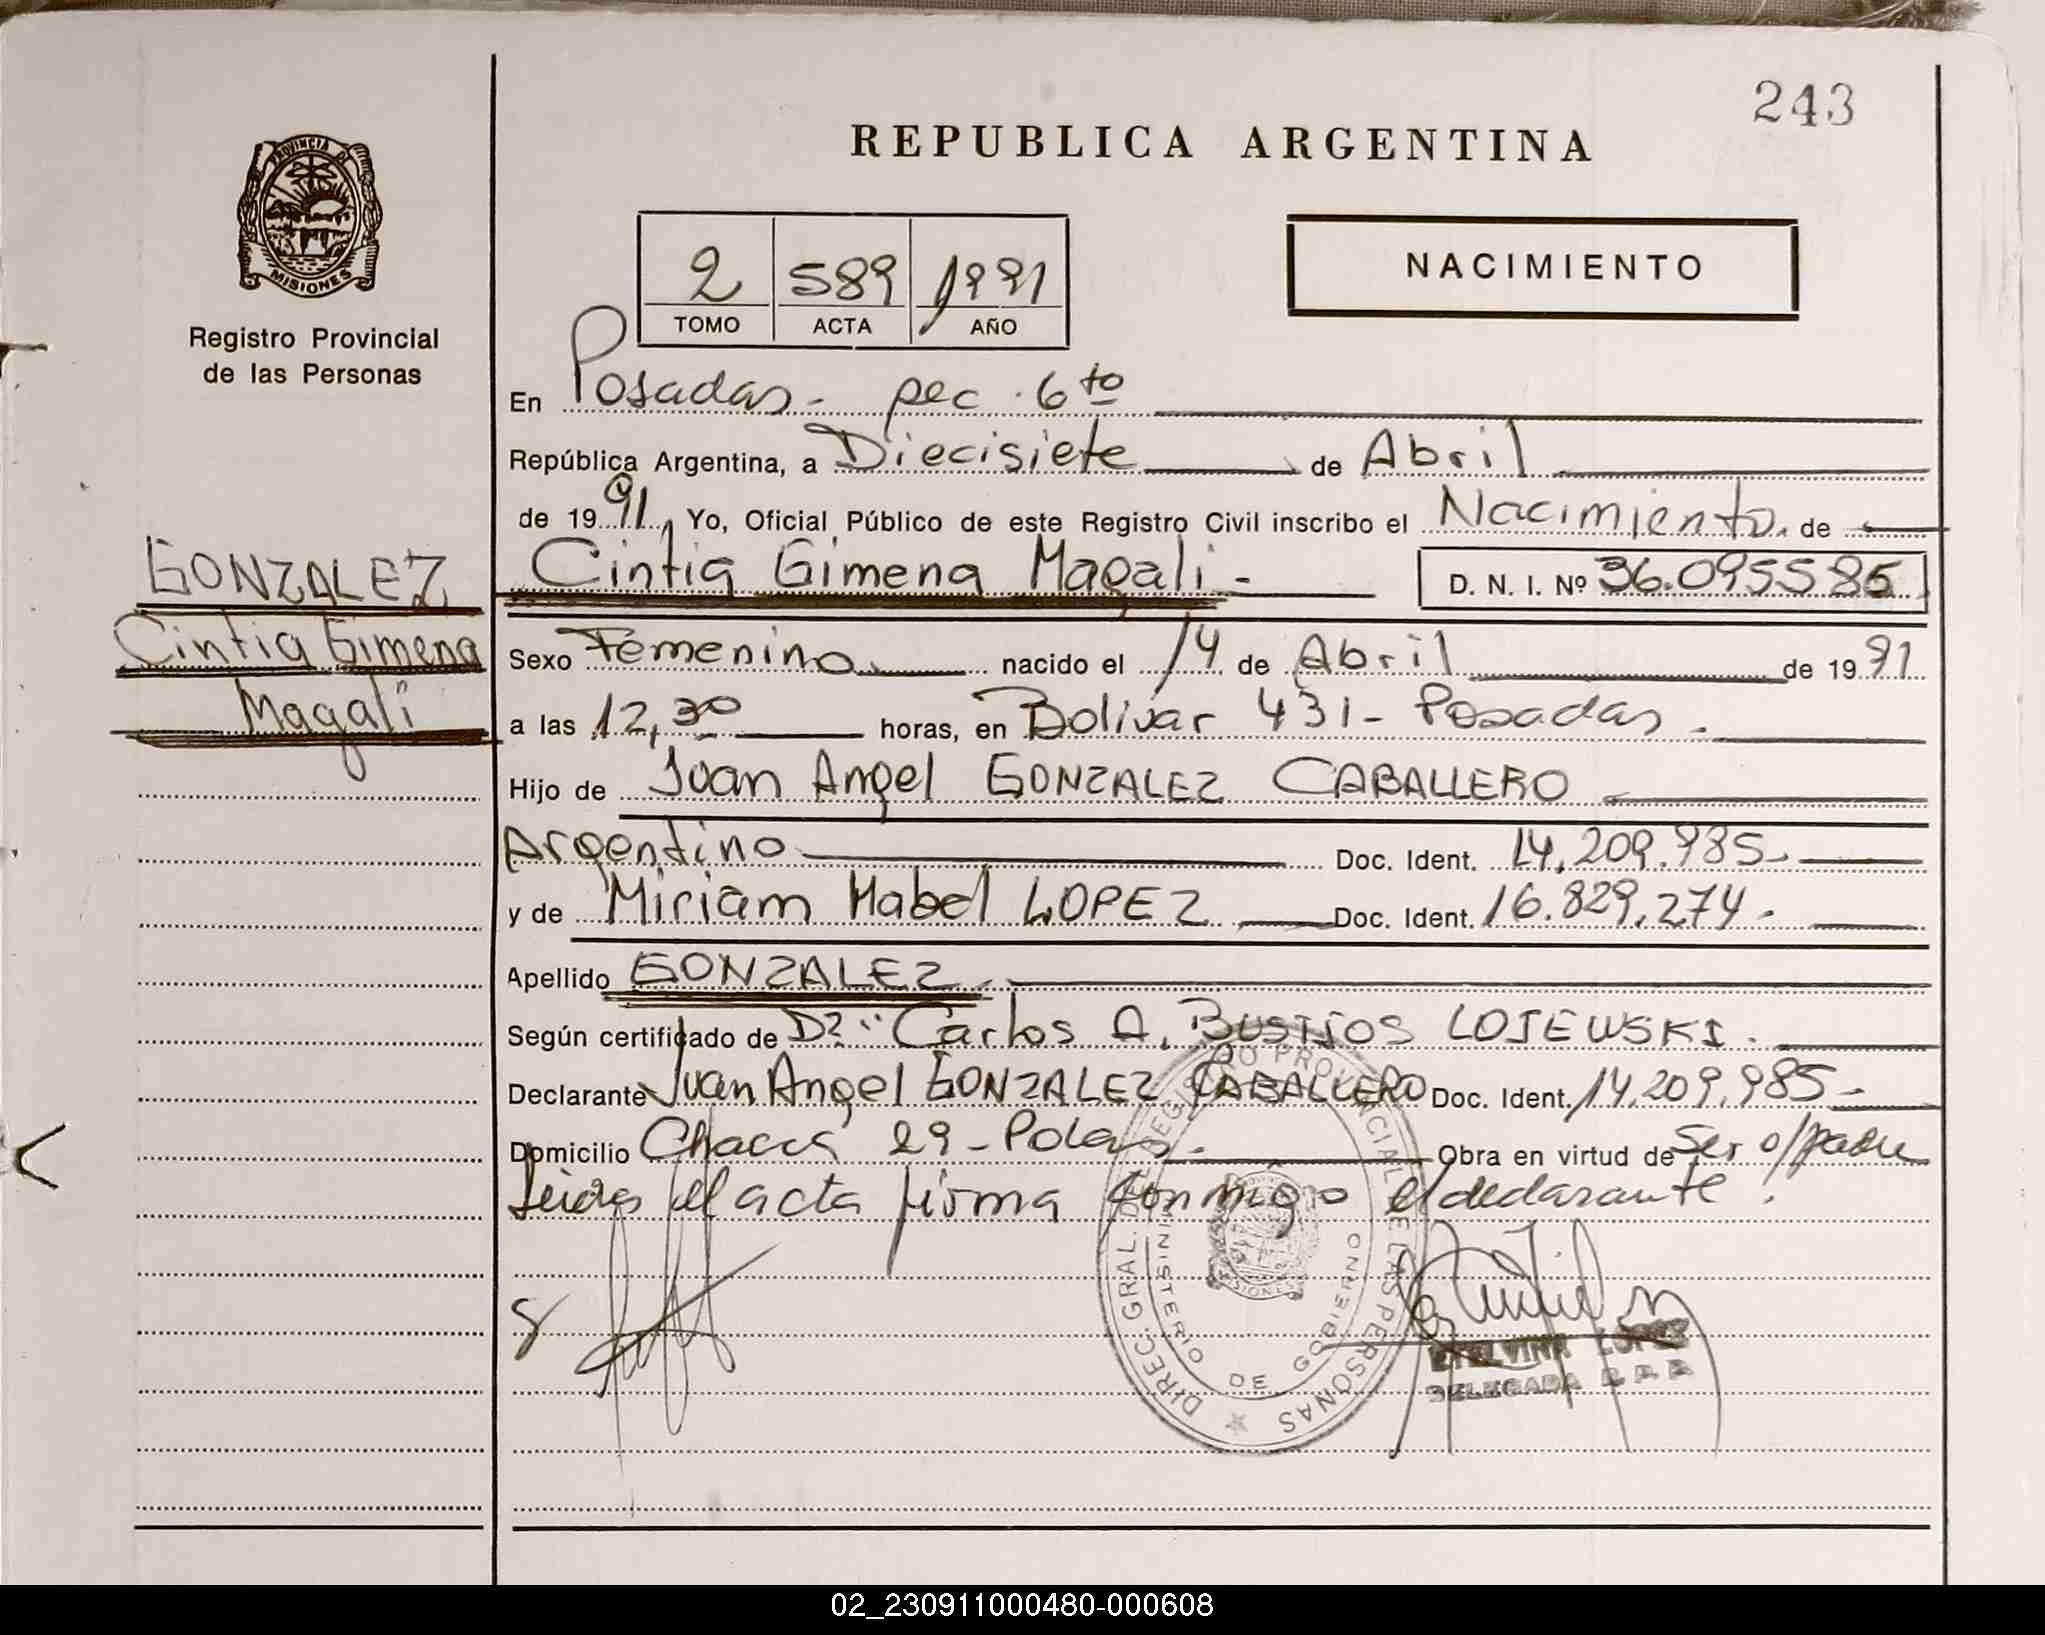 243
REPUBLICA ARGENTINA
PROVINCIA DE
MISIONES
Registro Provincial
de las Personas
2 589 1991
TOMO ACTA AÑO
NACIMIENTO
En Posadas - pec. 6to
República Argentina, a Diecisiete de Abril
de 1991, Yo, Oficial Público de este Registro Civil inscribo el Nacimiento. de
GONZALEZ
Cintia Gimena
Magali
Cintia Gimena Magali - D. N. I. Nº 36.095585
Sexo Femenino. nacido el 14 de Abril de 1991
a las 12,30 horas, en Bolivar 431 - Posadas.
Hijo de Juan Angel GONZALEZ CABALLERO
Argentino Doc. Ident. 14.209.985-
y de Miriam Mabel LOPEZ Doc. Ident. 16.829.274-
Apellido GONZALEZ.
Según certificado de Carlos A. LOJEWSKI.
Declarante Juan Angel GONZALEZ CABALLERO Doc. Ident. 14.209.985-
Domicilio 29 - Obra en virtud de Ser padre
acta firma conmigo el declarante.
DIREC. GRAL. DEL REGISTRO PROVINCIAL DE LAS PERSONAS
MINISTERIO DE GOBIERNO
MISIONES
ETELVINA LOPEZ
DELEGADA R.P.P.
02_230911000480-000608